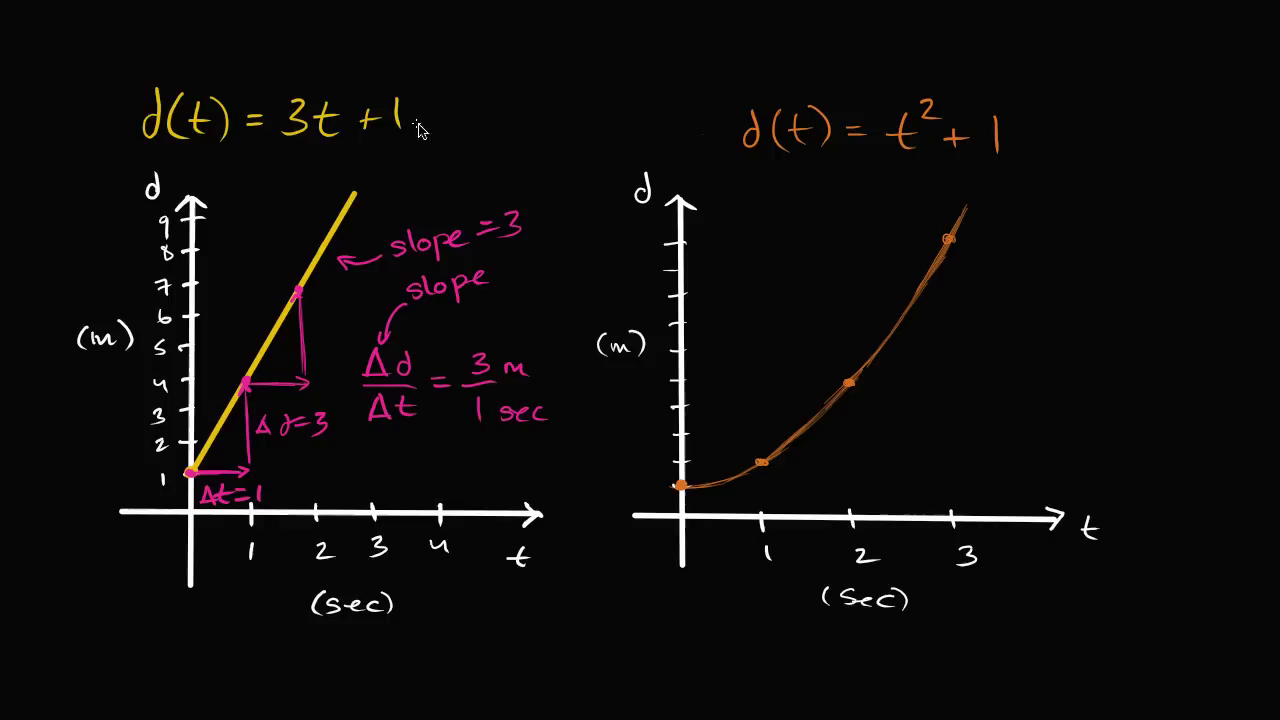 d(t) = 3t + 1
d
9
8
7
6
5
4
3
2
1
(m)
slope = 3
slope
Δd/Δt = 3 m/1 sec
Δd=3
Δt=1
1 2 3 4 t
(sec)
d(t) = t² + 1
d
(m)
1 2 3 t
(sec)